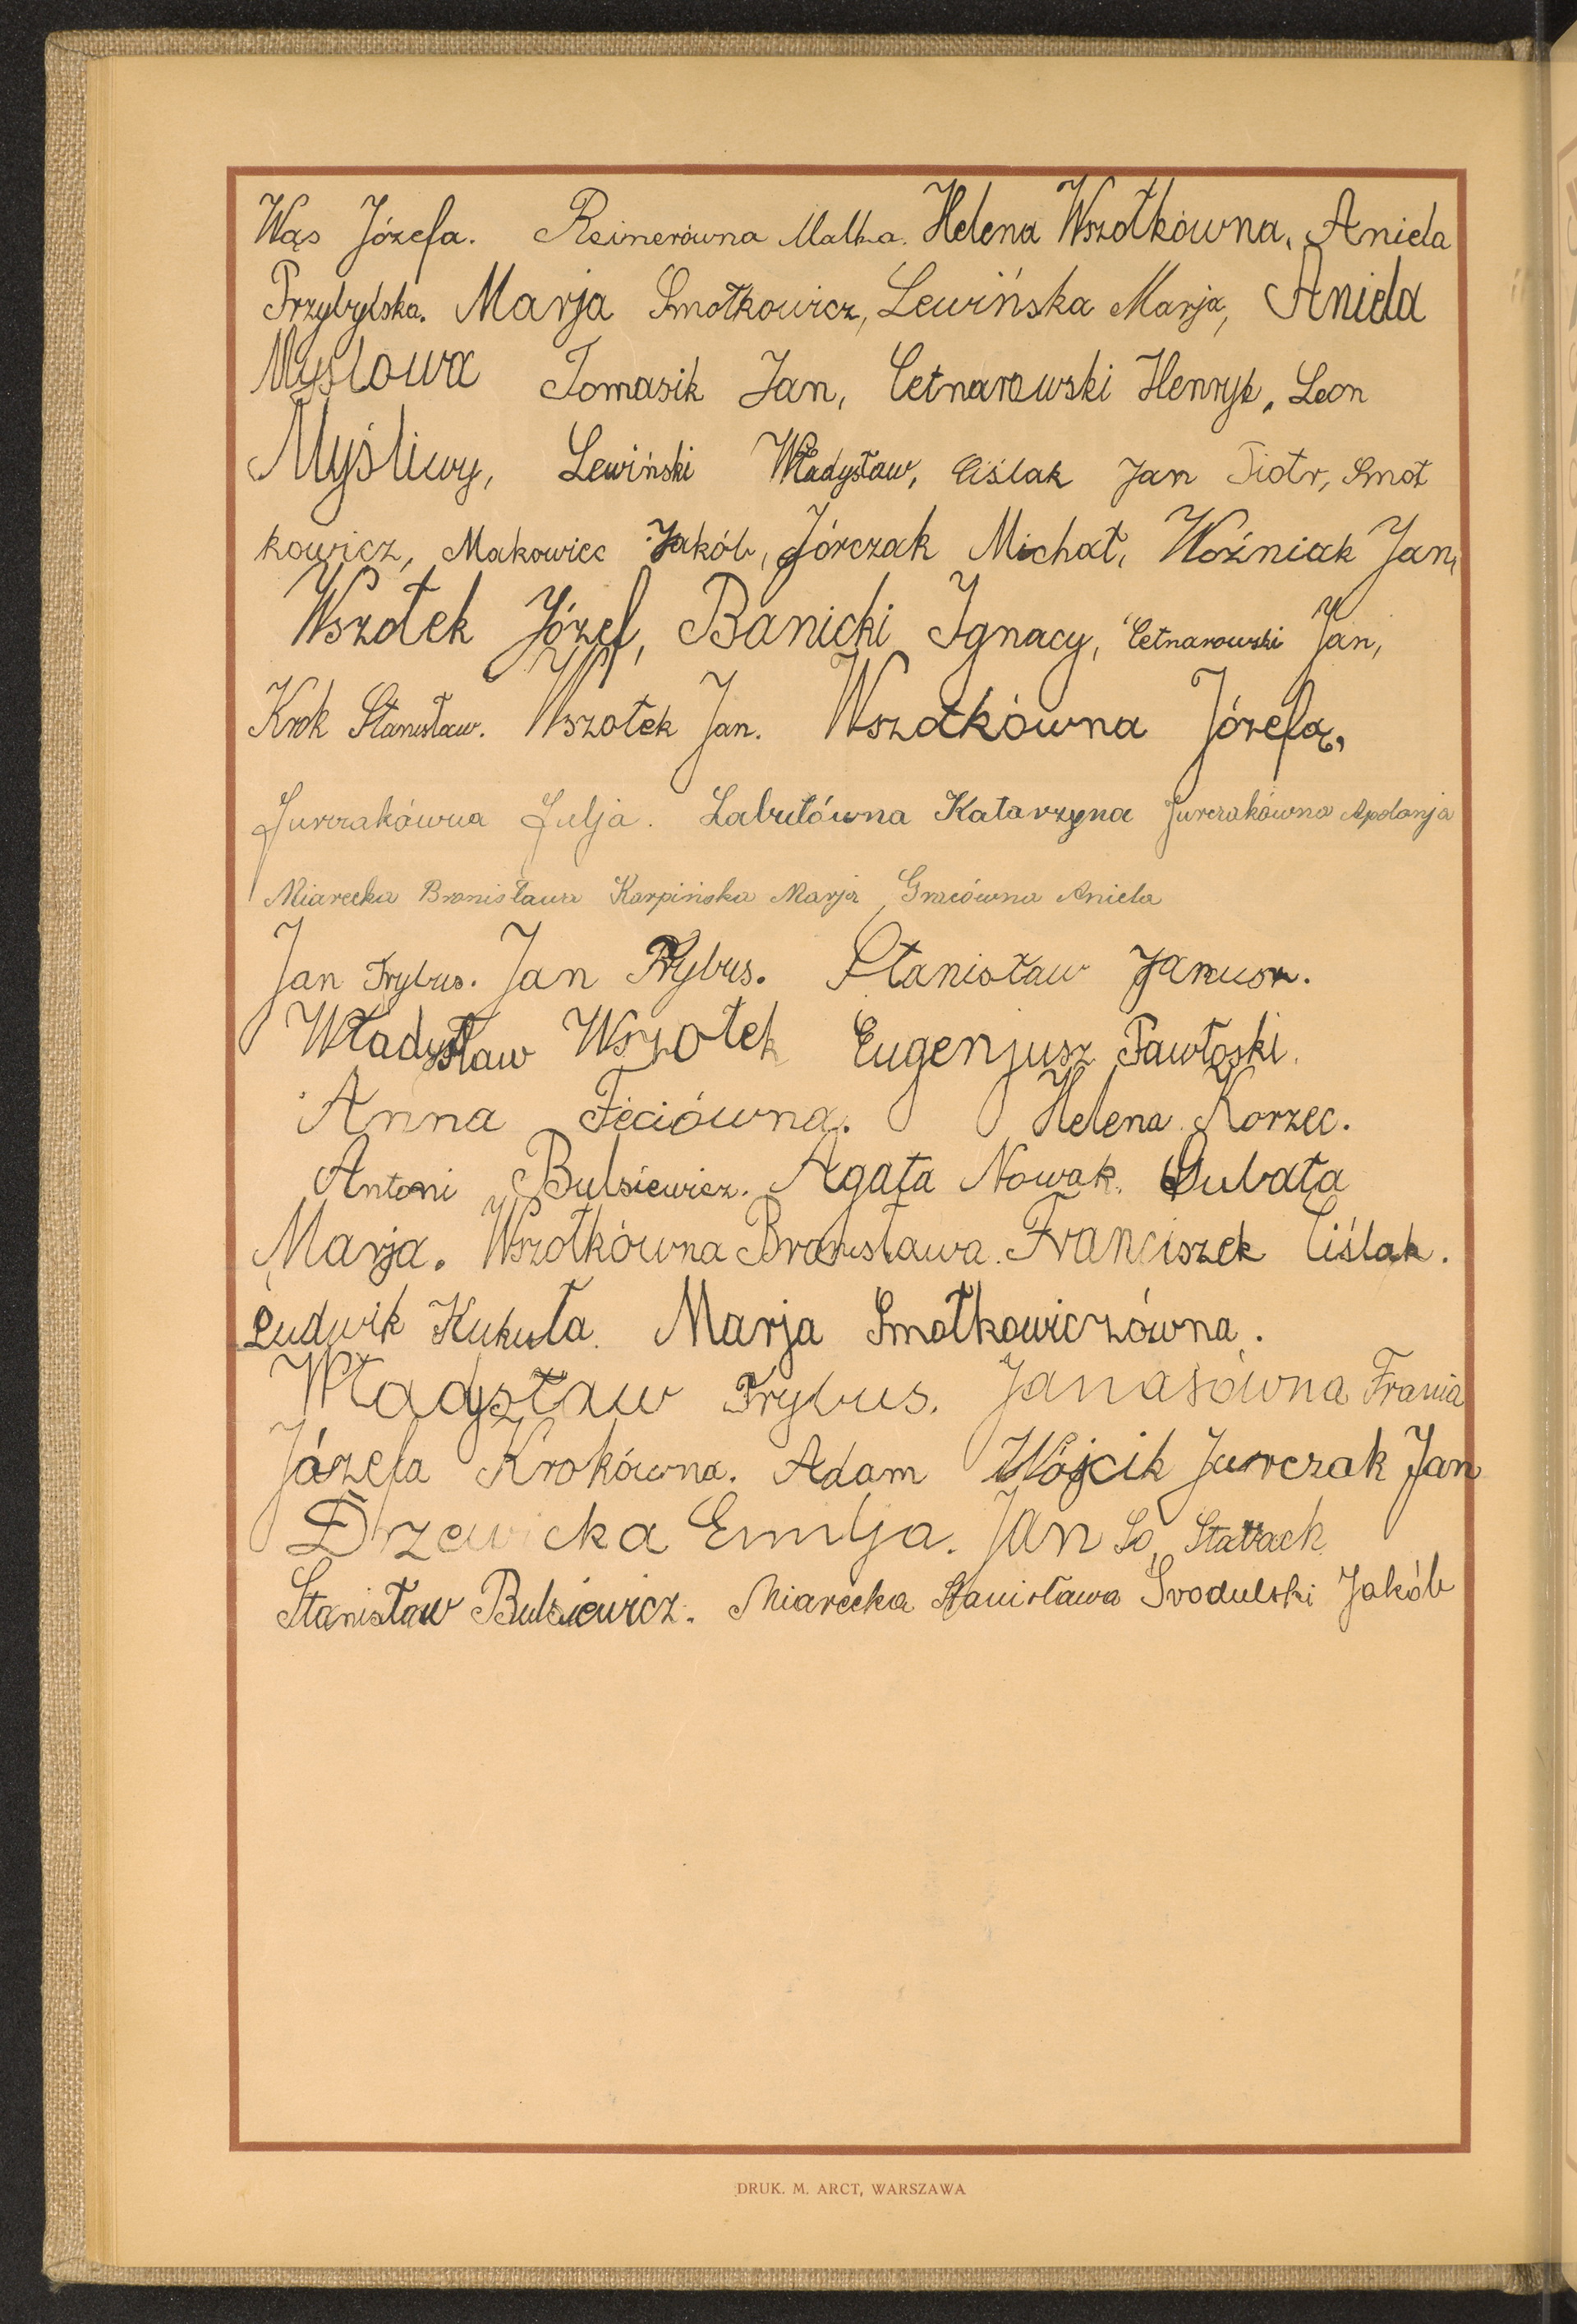 Wąs Józefa. Reimerówna Malka. Helena Wszołkówna, Aniela
Przybylska. Marja Smołkowicz, Lewińska Marja, Aniela
Mysłowa Tomasik Jan, Cetnarowski Henryk, Leon
Myśliwy, Lewiński Władysław, Ciślak Jan Piotr, Smoł
kowicz, Makowiec Jakób, Jórczak Michał, Woźniak Jan,
Wszołek Józef, Banicki Ignacy, Cetnarowski Jan,
Krok Stanisław. Wszołek Jan. Wszołkówna Józefa,
Jurczakówna Julja. Łabułówna Katarzyna Jurczakówna Apolonja
Miarecka Bronisława Karpińska Marja, Gracówna Aniela
Jan Trybus. Jan Trybus. Stanisław Janusz.
Władysław Wszołek Eugenjusz Pawłoski.
Anna Feciówna. Helena Korzec.
Antoni Bulsiewicz. Agata Nowak. Dubata
Marja. Wszołkówna Bronisława. Franciszek Ciślak.
Ludwik Kukuła. Marja Smołkowiczówna.
Władysław Trybus. Janasówna Frania
Józefa Krokówna. Adam Wójcik Jurczak Jan
Drzewicka Emilja. Jan
Stanisław Bulsiewicz. Miarecka Stanisława Srodulski Jakób
DRUK. M. ARCT, WARSZAWA